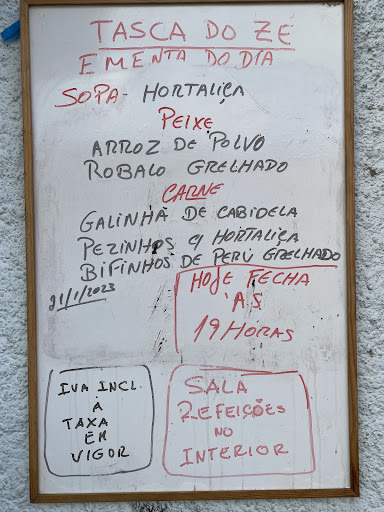 TASCA DO ZE
EMENTA DO DIA
SOPA- HORTALIÇA
PEIXE
ARROZ DE POLVO
ROBALO GRELHADO
CARNE
GALINHA DE CABIDELA
PEZINHOS C/ HORTALIÇA
BIFINHOS DE PERÚ GRELHADO
21/1/2023
HOJE FECHA
ÀS
19 HORAS
IVA INCL.
À
TAXA
EM
VIGOR
SALA
REFEIÇÕES
NO
INTERIOR